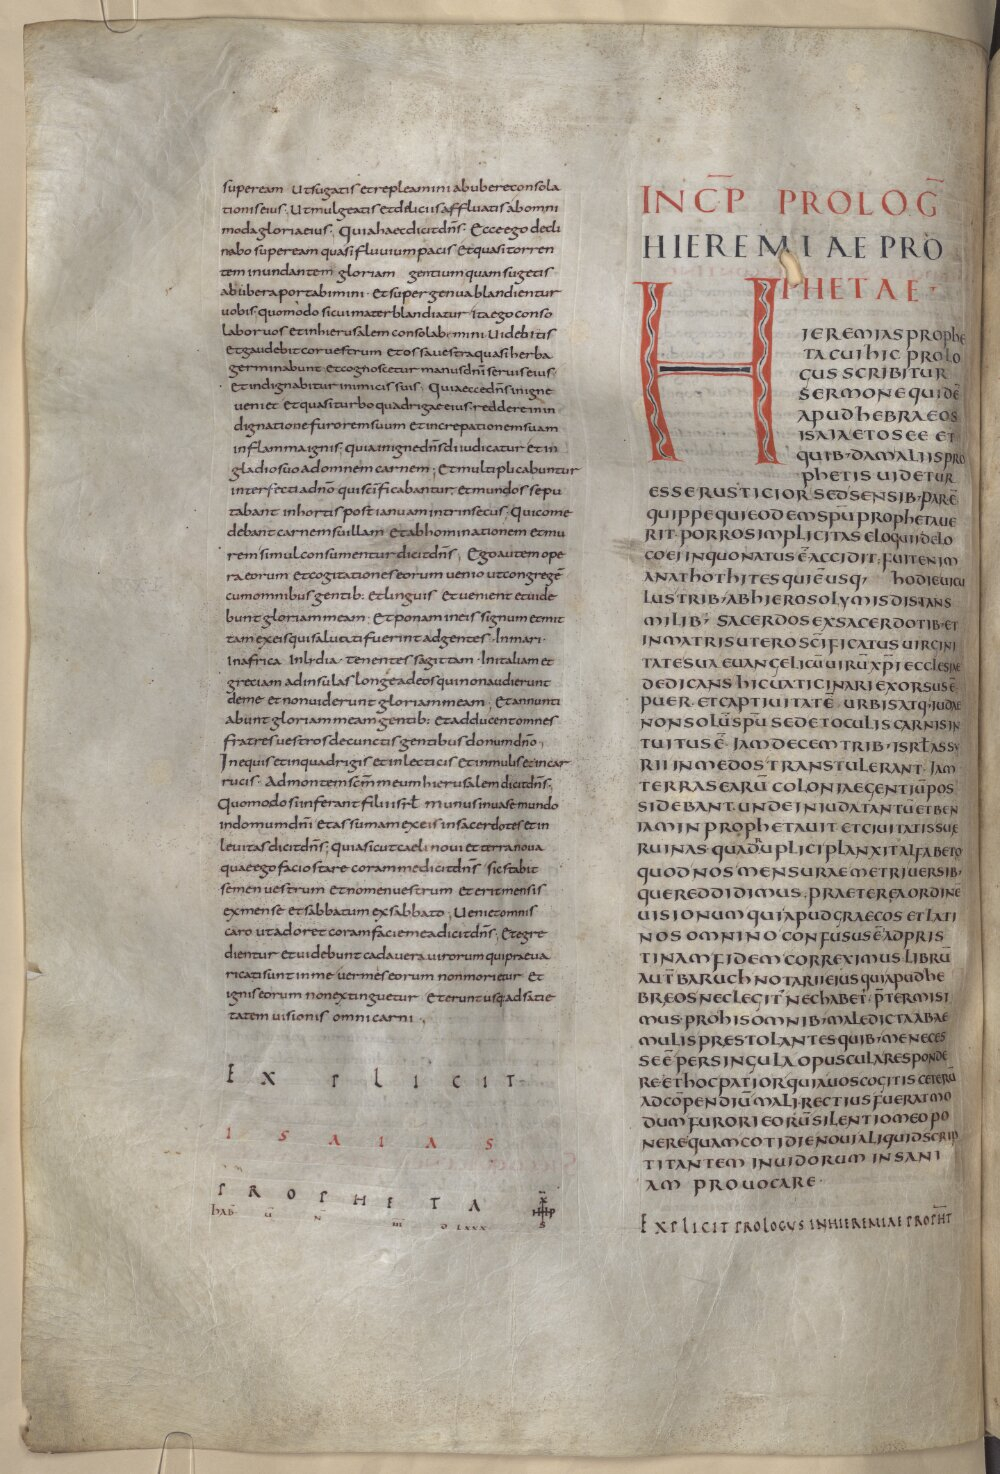 super eam Ut sugatis et repleamini ab ubere consola
tionis eius. Ut mulgeatis et deliciis affluatis ab omni
moda gloria eius. Quia haec dicit dñs. Ecce ego decli
nabo super eam quasi fluuium pacis Et quasi torren
tem inundantem gloriam gentium quam sugetis
ab ubera portabimini. Et super genua blandientur
uobis. quomodo si cui mater blandiatur ita ego conso
labor uos et in hierusalem consolabimini Uidebitis
Et gaudebit cor uestrum et ossa uestra quasi herba
germinabunt. et cognoscetur manus dñi seruis eius.
Et indignabitur inimicis suis. Quia ecce dñs in igne
ueniet Et quasi turbo quadrigae eius. reddere in in
dignatione furorem suum et increpationem suam
in flamma ignis. quia in igne dñs diiudicatur et in
gladio suo ad omnem carnem; Et multiplicabuntur
interfecti a dño qui scificabantur. et mundos se pu
tabant in hortis post ianuam intrinsecus. Qui come
debant carnem suillam Et abhominationem et mu
rem simul consumentur dicit dñs; Ego autem ope
ra eorum Et cogitationes eorum uenio ut congregē
cum omnibus gentib: et linguis Et uenient et uide
bunt gloriam meam. Et ponam in eis signum et mit
tam ex eis qui saluati fuerint ad gentes. In mari.
in africa In lydia. tenentes sagittam. In italiam et
greciam ad insulas longe ad eos qui non audierunt
de me et non uiderunt gloriam meam; Et annunti
abunt gloriam meam gentib: Et adducent omnes
fratres uestros de cunctis gentibus donum dño;
In equis et in quadrigis et in lecticis Et in mulis et in car
rucis. Ad montem scm meum hierusalem dicit dñs.
Quomodo si inferant filii isrl munus in uase mundo
in domum dñi Et assumam ex eis in sacerdotes et in
leuitas dicit dñs; Quia sicut caeli noui et terra noua
quae ego facio stare coram me dicit dñs sic stabit
semen uestrum et nomen uestrum et erit mensis
ex mense et sabbatum ex sabbato; Ueniet omnis
caro ut adoret coram facie mea dicit dñs; Et egre
dientur et uidebunt cadauera uirorum qui praeua
ricati sunt in me uermes eorum non morietur Et
ignis eorum non extinguetur Et erunt usq; ad satie
tatem uisionis omni carni.
EXPLICIT
ISAIAS
PROPHETA
hAB̄ ū N̄ III D LXXX
INCP̄ PROLOḠ
HIEREMIAE PRO
PHETAE.
HIEREMIAS PROPHE
TA CUI HIC PROLO
GUS SCRIBITUR
SERMONE QUIDĒ
APUD HEBRAEOS
ISAIA ET OSEE ET
QUIB; DAM ALIIS PRO
PHETIS UIDETUR
ESSE RUSTICIOR SED SENSIB; PARĒ
QUIPPE QUI EODEM SPŪ PROPHETAUE
RIT. PORRO SIMPLICITAS ELOQUII DELO
CO EI IN QUO NATUS Ē ACCIDIT. FUIT ENIM
ANATHOTHITES QUI Ē USQ; HODIE UICU
LUS TRIB; AB HIEROSOLYMIS DISTANS
MILIB; SACERDOS EX SACERDOTIB; ET
IN MATRIS UTERO SC̄IFICATUS UIRGINI
TATE SUA EUANGELICŪ UIRŪ XPĪ ECCLESIAE
DEDICANS HIC UATICINARI EXORSUS Ē
PUER. ET CAPTIUITATĒ URBIS ATQ; IUDAE
NON SOLŪ SPŪ SED ET OCULIS CARNIS IN
TUITUS Ē IAM DECEM TRIB; ISRL̄ ASSY
RII IN MEDOS TRANSTULERANT. IAM
TERRAS EARŪ COLONIAE GENTIŪ POS
SIDEBANT. UNDE IN IUDA TANTŪ ET BEN
IAMIN PROPHETAUIT. ET CIUITATIS SUAE
RUINAS QUADRUPLICI PLANXIT ALFABETO
QUOD NOS MENSURAE METRI UERSIB;
QUE REDDIDIMUS. PRAETEREA ORDINĒ
UISIONUM QUI APUD GRAECOS ET LATI
NOS OMNINO CONFUSUS Ē AD PRIS
TINAM FIDEM CORREXIMUS. LIBRŪ
AUT̄ BARUCH NOTARII EIUS QUI APUD HE
BREOS NEC LEGIT̄ NEC HABET̄ P̄TERMISI
MUS. PRO HIS OMNIB; MALEDICTA AB AE
MULIS PRESTOLANTES QUIB; ME NECES
SE Ē PER SINGULA OPUSCULA RESPONDE
RE. ET HOC PATIOR QUIA UOS COGITIS CETERŪ
AD COPENDIŪ MALI. RECTIUS FUERAT MO
DUM FURORI EORŪ SILENTIO MEO PO
NERE QUAM COTIDIE NOUI ALIQUID SCRIP
TITANTEM INUIDORUM INSANI
AM PROUOCARE.
EXPLICIT PROLOGUS IN HIEREMIAE PROPHT̄